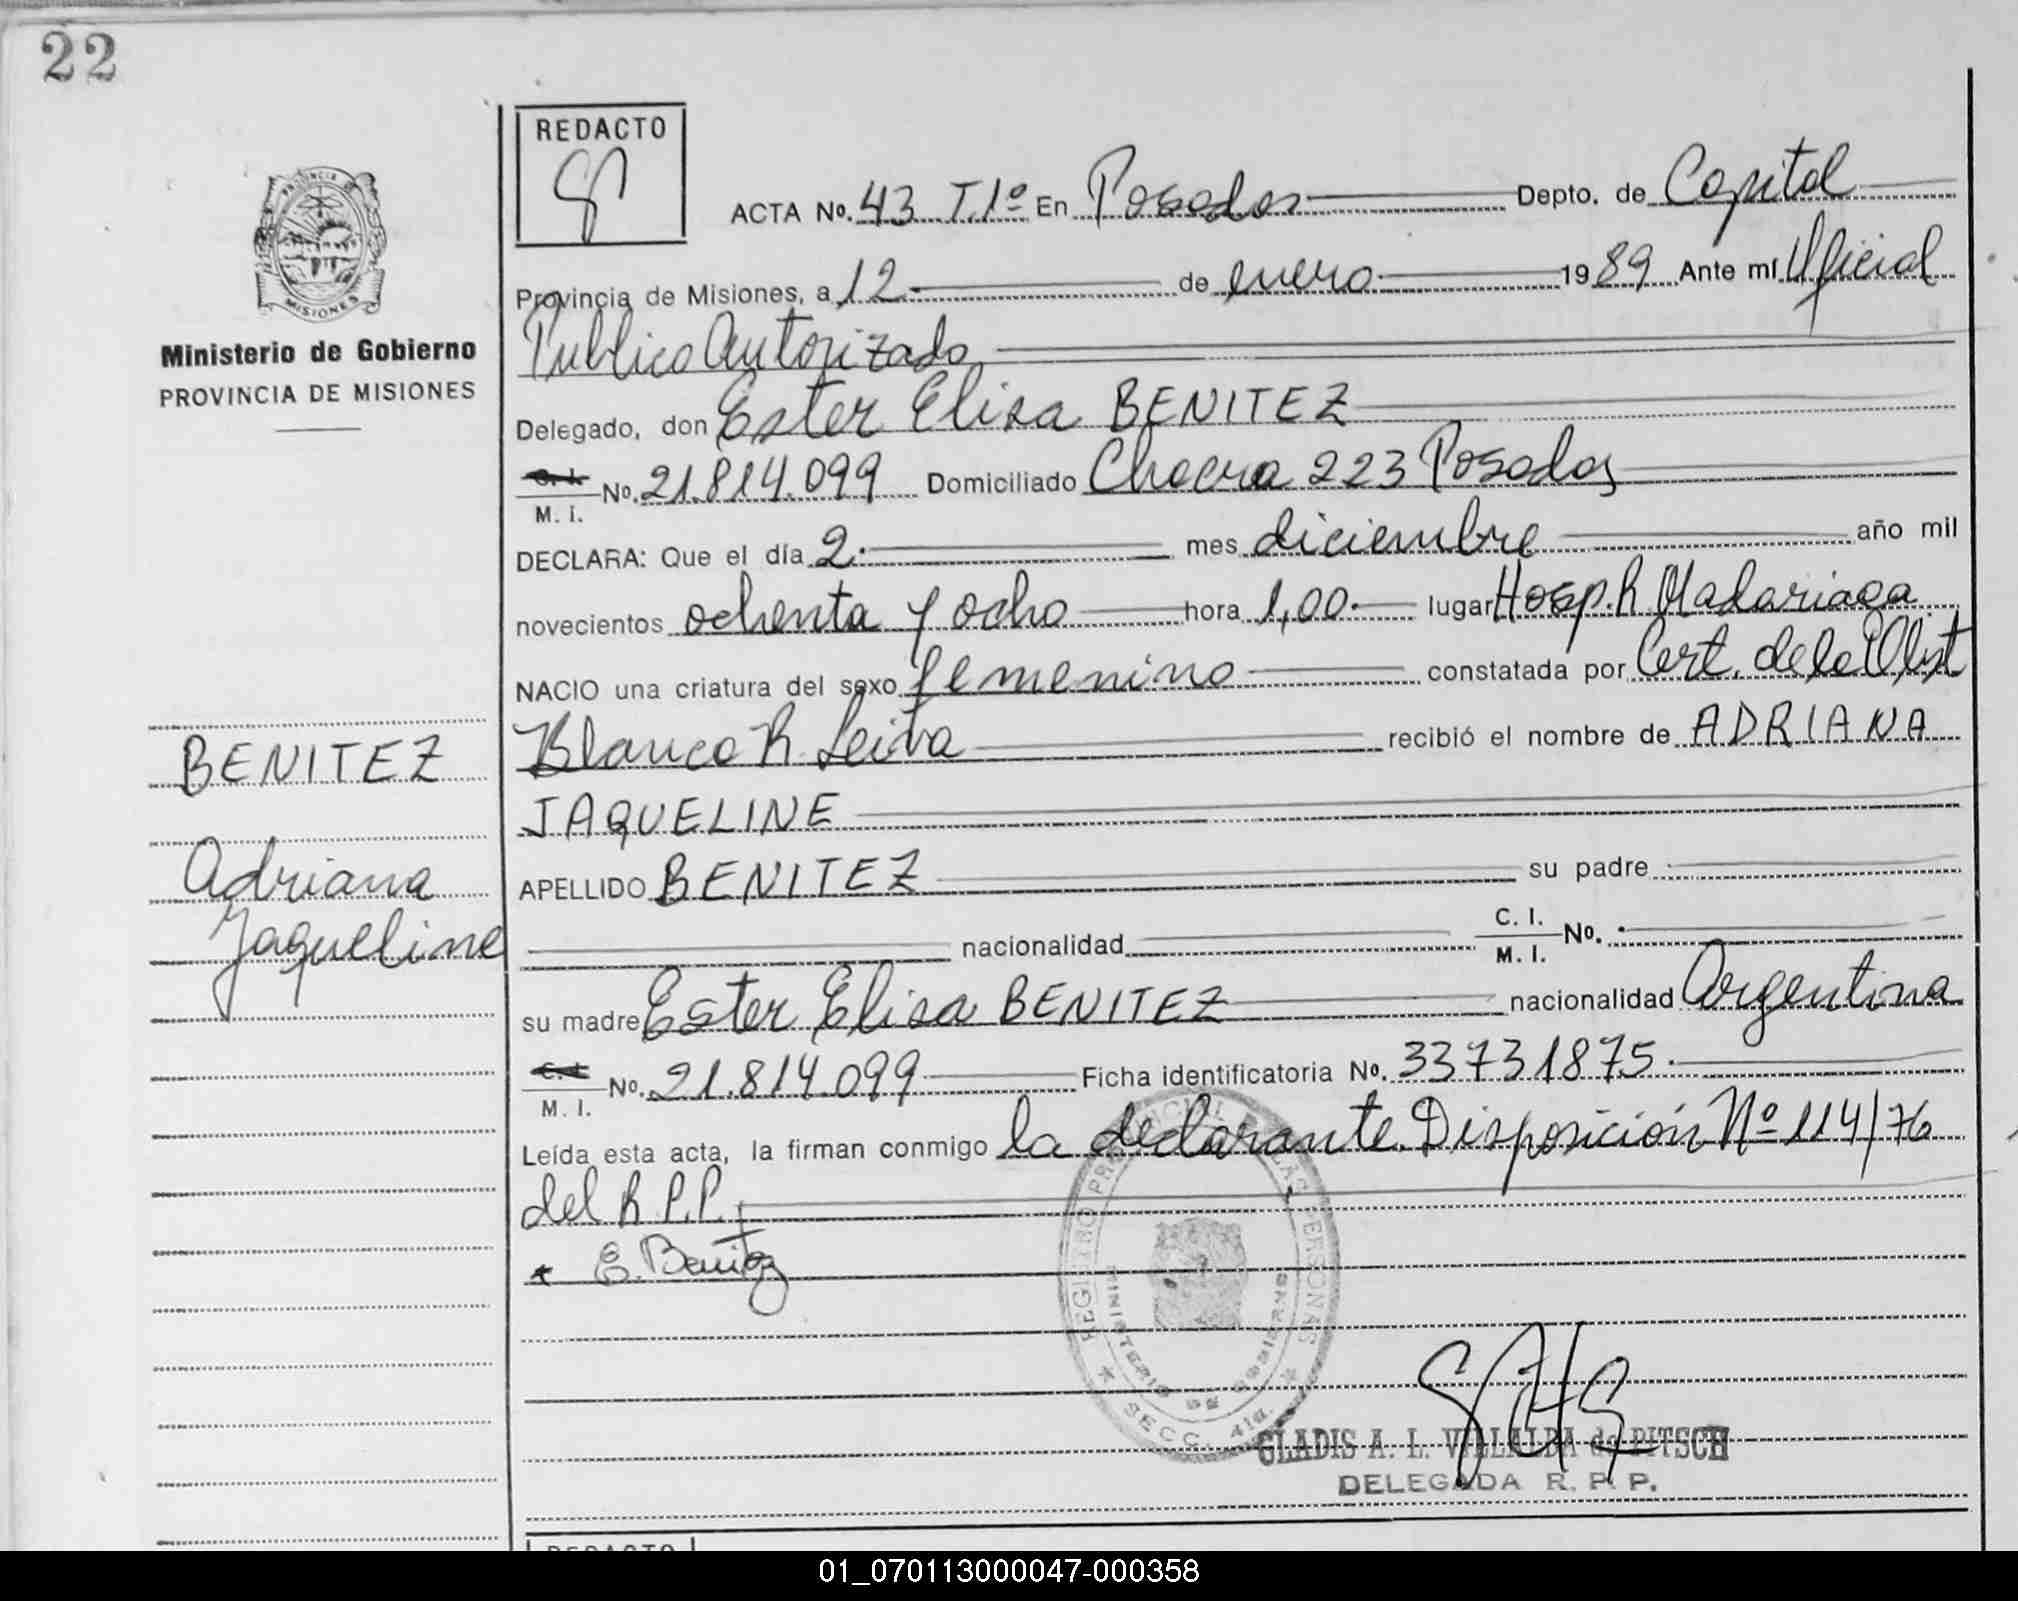 22
REDACTO
ACTA No. 43 T.1º En Posadas Depto. de Capital
Provincia de Misiones, a 12 de enero 1989 Ante mí Oficial
Publico Autorizado
Delegado, don Ester Elisa BENITEZ
C. I. M. I. No. 21.814.099 Domiciliado Chacra 223 Posadas
DECLARA: Que el día 2 mes diciembre año mil
novecientos ochenta y ocho hora 1,00 lugar Hosp. R. Madariaga
NACIO una criatura del sexo femenino constatada por Cert. de la Obst
Blanca R. Leiva recibió el nombre de ADRIANA
JAQUELINE
APELLIDO BENITEZ su padre
nacionalidad C. I. M. I. No.
su madre Ester Elisa BENITEZ nacionalidad Argentina
C. I. M. I. No. 21.814.099 Ficha identificatoria No. 33731875
Leída esta acta, la firman conmigo la declarante. Disposición Nº 114/76
del R.P.P.
E. Benitez
PROVINCIA DE MISIONES
Ministerio de Gobierno
PROVINCIA DE MISIONES
BENITEZ
Adriana
Jaqueline
REGISTRO PROVINCIAL DE LAS PERSONAS
MINISTERIO DE GOBIERNO
SECC. 41a.
GLADIS A. L. VILLALBA de PITSCH
DELEGADA R. P. P.
REDACTO
01_070113000047-000358